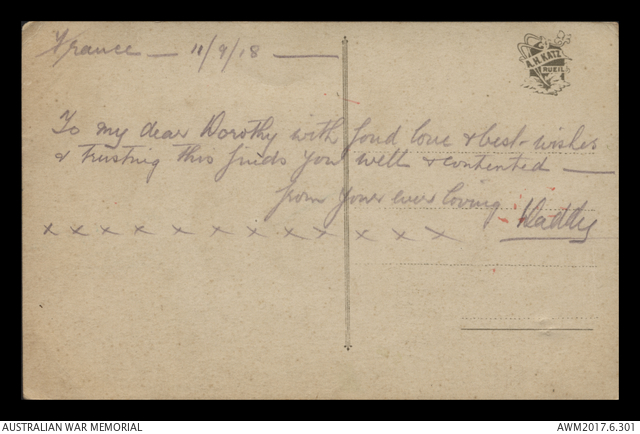 France — 11/9/18 —
A.H. KATZ
RUEIL
To my dear Dorothy with fond love & best-wishes
& trusting this finds you well & contented —
from your ever loving Daddy
x x x x x x x x x x x x
AUSTRALIAN WAR MEMORIAL
AWM2017.6.301